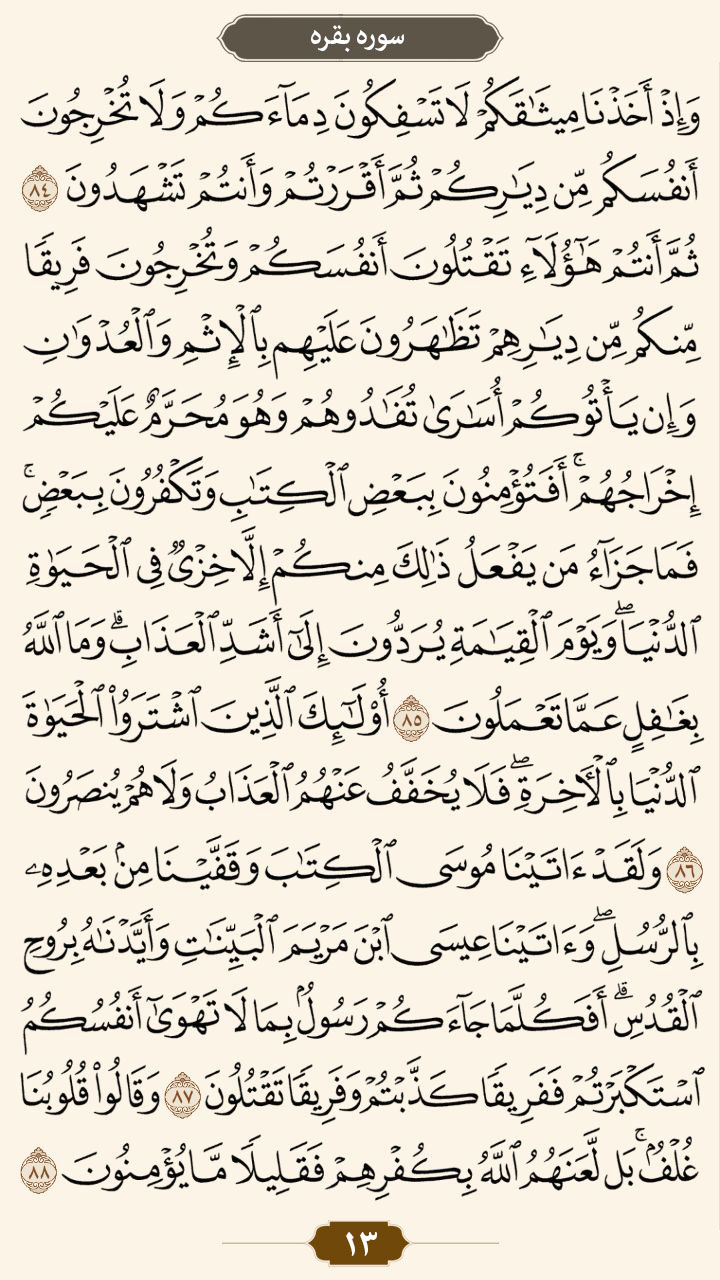 سوره بقره
وَإِذْ أَخَذْنَا مِيثَـٰقَكُمْ لَا تَسْفِكُونَ دِمَآءَكُمْ وَلَا تُخْرِجُونَ
أَنفُسَكُم مِّن دِيَـٰرِكُمْ ثُمَّ أَقْرَرْتُمْ وَأَنتُمْ تَشْهَدُونَ ٨٤
ثُمَّ أَنتُمْ هَـٰٓؤُلَآءِ تَقْتُلُونَ أَنفُسَكُمْ وَتُخْرِجُونَ فَرِيقًا
مِّنكُم مِّن دِيَـٰرِهِمْ تَظَـٰهَرُونَ عَلَيْهِم بِٱلْإِثْمِ وَٱلْعُدْوَٰنِ
وَإِن يَأْتُوكُمْ أُسَـٰرَىٰ تُفَـٰدُوهُمْ وَهُوَ مُحَرَّمٌ عَلَيْكُمْ
إِخْرَاجُهُمْ ۚ أَفَتُؤْمِنُونَ بِبَعْضِ ٱلْكِتَـٰبِ وَتَكْفُرُونَ بِبَعْضٍ ۚ
فَمَا جَزَآءُ مَن يَفْعَلُ ذَٰلِكَ مِنكُمْ إِلَّا خِزْىٌ فِى ٱلْحَيَوٰةِ
ٱلدُّنْيَا ۖ وَيَوْمَ ٱلْقِيَـٰمَةِ يُرَدُّونَ إِلَىٰٓ أَشَدِّ ٱلْعَذَابِ ۗ وَمَا ٱللَّهُ
بِغَـٰفِلٍ عَمَّا تَعْمَلُونَ ٨٥ أُو۟لَـٰٓئِكَ ٱلَّذِينَ ٱشْتَرَوُا۟ ٱلْحَيَوٰةَ
ٱلدُّنْيَا بِٱلْـَٔاخِرَةِ ۖ فَلَا يُخَفَّفُ عَنْهُمُ ٱلْعَذَابُ وَلَا هُمْ يُنصَرُونَ
٨٦ وَلَقَدْ ءَاتَيْنَا مُوسَى ٱلْكِتَـٰبَ وَقَفَّيْنَا مِنۢ بَعْدِهِۦ
بِٱلرُّسُلِ ۖ وَءَاتَيْنَا عِيسَى ٱبْنَ مَرْيَمَ ٱلْبَيِّنَـٰتِ وَأَيَّدْنَـٰهُ بِرُوحِ
ٱلْقُدُسِ ۗ أَفَكُلَّمَا جَآءَكُمْ رَسُولٌۢ بِمَا لَا تَهْوَىٰٓ أَنفُسُكُمُ
ٱسْتَكْبَرْتُمْ فَفَرِيقًا كَذَّبْتُمْ وَفَرِيقًا تَقْتُلُونَ ٨٧ وَقَالُوا۟ قُلُوبُنَا
غُلْفٌۢ ۚ بَل لَّعَنَهُمُ ٱللَّهُ بِكُفْرِهِمْ فَقَلِيلًا مَّا يُؤْمِنُونَ ٨٨
١٣